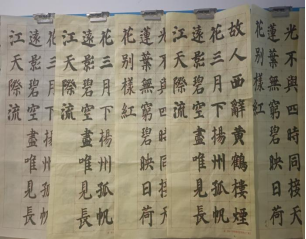 光不與四時同接天
蓮葉無窮碧映日荷
花別樣紅
故人西辭黃鶴樓煙
花三月下揚州孤帆
遠影碧空盡唯見長
江天際流
蓮葉無窮碧映日荷
花別樣紅
花三月下揚州孤帆
遠影碧空盡唯見長
江天際流
花三月下揚州孤帆
遠影碧空盡唯見長
江天際流